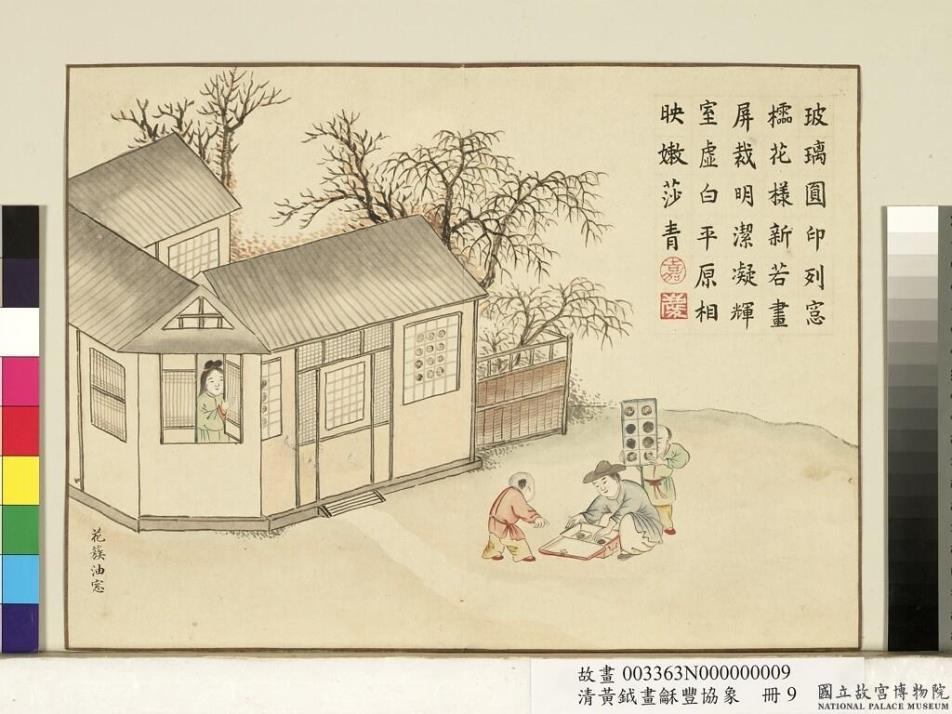 玻璃圓印列窓
櫺花樣新若畫
屏裁明潔凝輝
室虛白平原相
映嫩莎青
嘉
花簇油窓
故畫 003363N000000009
清黃鉞畫龢豐協象 冊 9
國立故宮博物院
NATIONAL PALACE MUSEUM